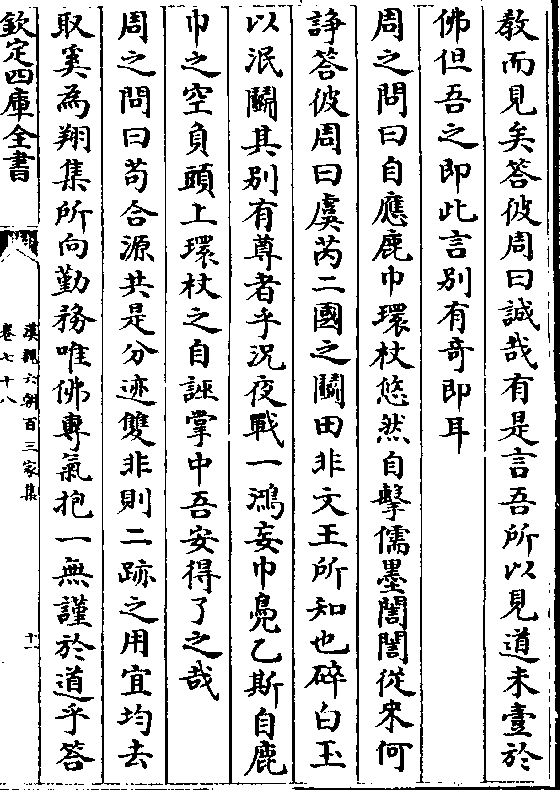 教而見矣答彼周曰誠哉有是言吾所以見道未壹於
佛但吾之即此言別有奇即耳
周之問曰自應鹿巾環杖悠然自擊儒墨誾誾從來何
諍答彼周曰虞芮二國之鬭田非文王所知也碎白玉
以泯鬭其別有尊者乎況夜戰一鴻妄巾鳧乙斯自鹿
巾之空負頭上環杖之自誣掌中吾安得了之哉
周之問曰苟合源共是分迹雙非則二跡之用宜均去
取奚為翔集所向勤務唯佛專氣抱一無謹於道乎答
欽定四庫全書
漢魏六朝百三家集
卷七十八
十一